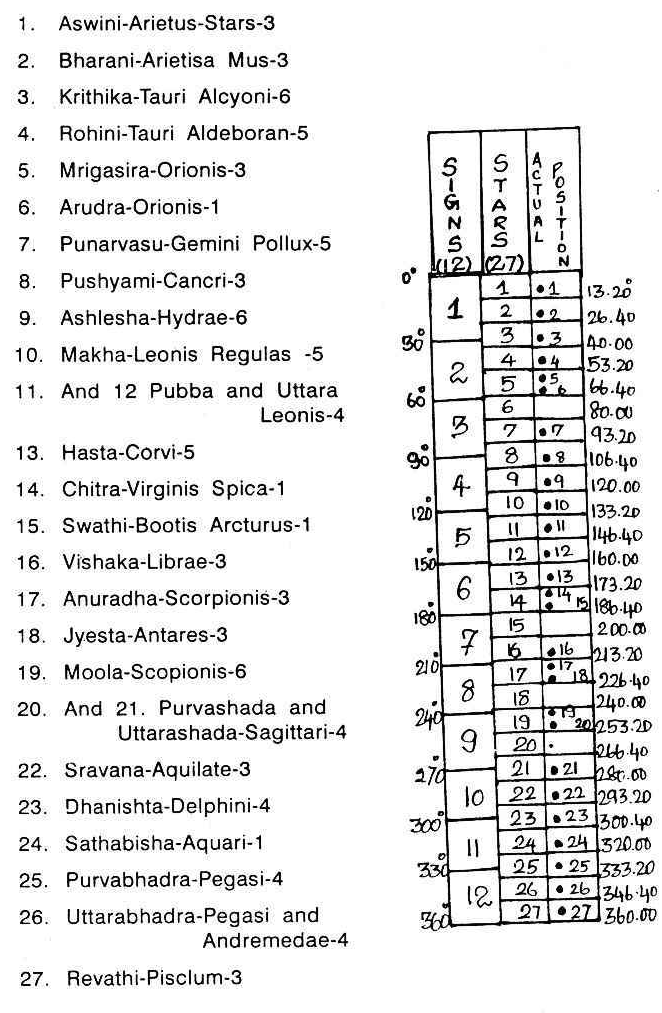 1. Aswini-Arietus-Stars-3
2. Bharani-Arietisa Mus-3
3. Krithika-Tauri Alcyoni-6
4. Rohini-Tauri Aldeboran-5
5. Mrigasira-Orionis-3
6. Arudra-Orionis-1
7. Punarvasu-Gemini Pollux-5
8. Pushyami-Cancri-3
9. Ashlesha-Hydrae-6
10. Makha-Leonis Regulas -5
11. And 12 Pubba and Uttara
Leonis-4
13. Hasta-Corvi-5
14. Chitra-Virginis Spica-1
15. Swathi-Bootis Arcturus-1
16. Vishaka-Librae-3
17. Anuradha-Scorpionis-3
18. Jyesta-Antares-3
19. Moola-Scopionis-6
20. And 21. Purvashada and
Uttarashada-Sagittari-4
22. Sravana-Aquilate-3
23. Dhanishta-Delphini-4
24. Sathabisha-Aquari-1
25. Purvabhadra-Pegasi-4
26. Uttarabhadra-Pegasi and
Andremedae-4
27. Revathi-Pisclum-3
SIGNS (12)
STARS (27)
ACTUAL POSITION
0°
1 •1 13.20°
1
2 •2 26.40
3 •3 40.00
30°
4 •4 53.20
2
5 •5 •6 66.40
60°
6 80.00
3
7 •7 93.20
90°
8 •8 106.40
4
9 •9 120.00
10 •10 133.20
120°
11 •11 146.40
5
12 •12 160.00
150°
13 •13 173.20
6
14 •14 •15 186.40
180°
15 200.00
7
16 •16 213.20
210°
17 •17 •18 226.40
8
18 240.00
240°
19 •19 •20 253.20
9
20 • 266.40
270°
21 •21 280.00
10
22 •22 293.20
23 •23 300.40
300°
24 •24 320.00
11
25 •25 333.20
330°
26 •26 346.40
12
27 •27 360.00
360°